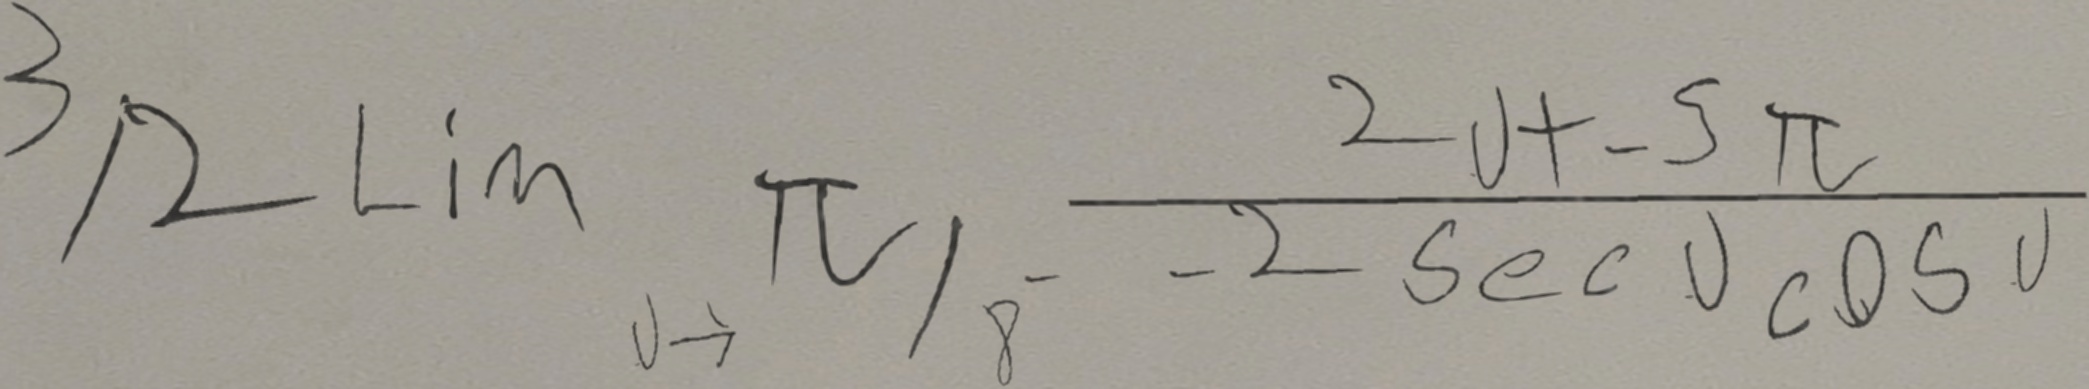 3/2 Lim v→π/8⁻ (2v+-5π)/(-2 sec v cos v)